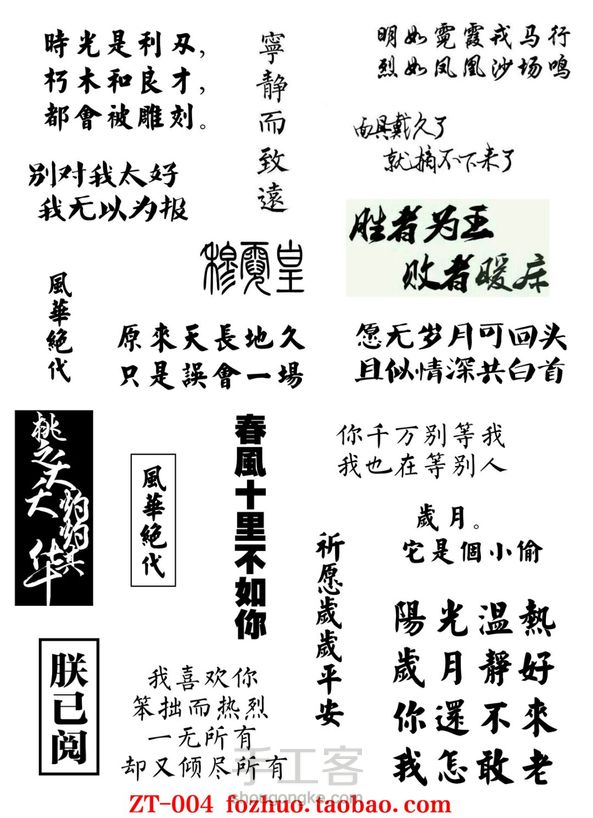 時光是利刃，
朽木和良才，
都會被雕刻。
寧靜而致遠
明如霓霞戎马行
烈如凤凰沙场鸣
面具戴久了
就摘不下来了
别对我太好
我无以为报
胜者为王
败者暖床
風華絕代
原來天長地久
只是誤會一場
愿无岁月可回头
且似情深共白首
桃之夭夭灼灼其华
風華絕代
春風十里不如你
你千万别等我
我也在等别人
歲月。
它是個小偷
祈愿歲歲平安
陽光温熱
歲月靜好
你還不來
我怎敢老
朕已阅
我喜欢你
笨拙而热烈
一无所有
却又倾尽所有
手工客
shougongke.com
ZT-004 fozhuo.taobao.com